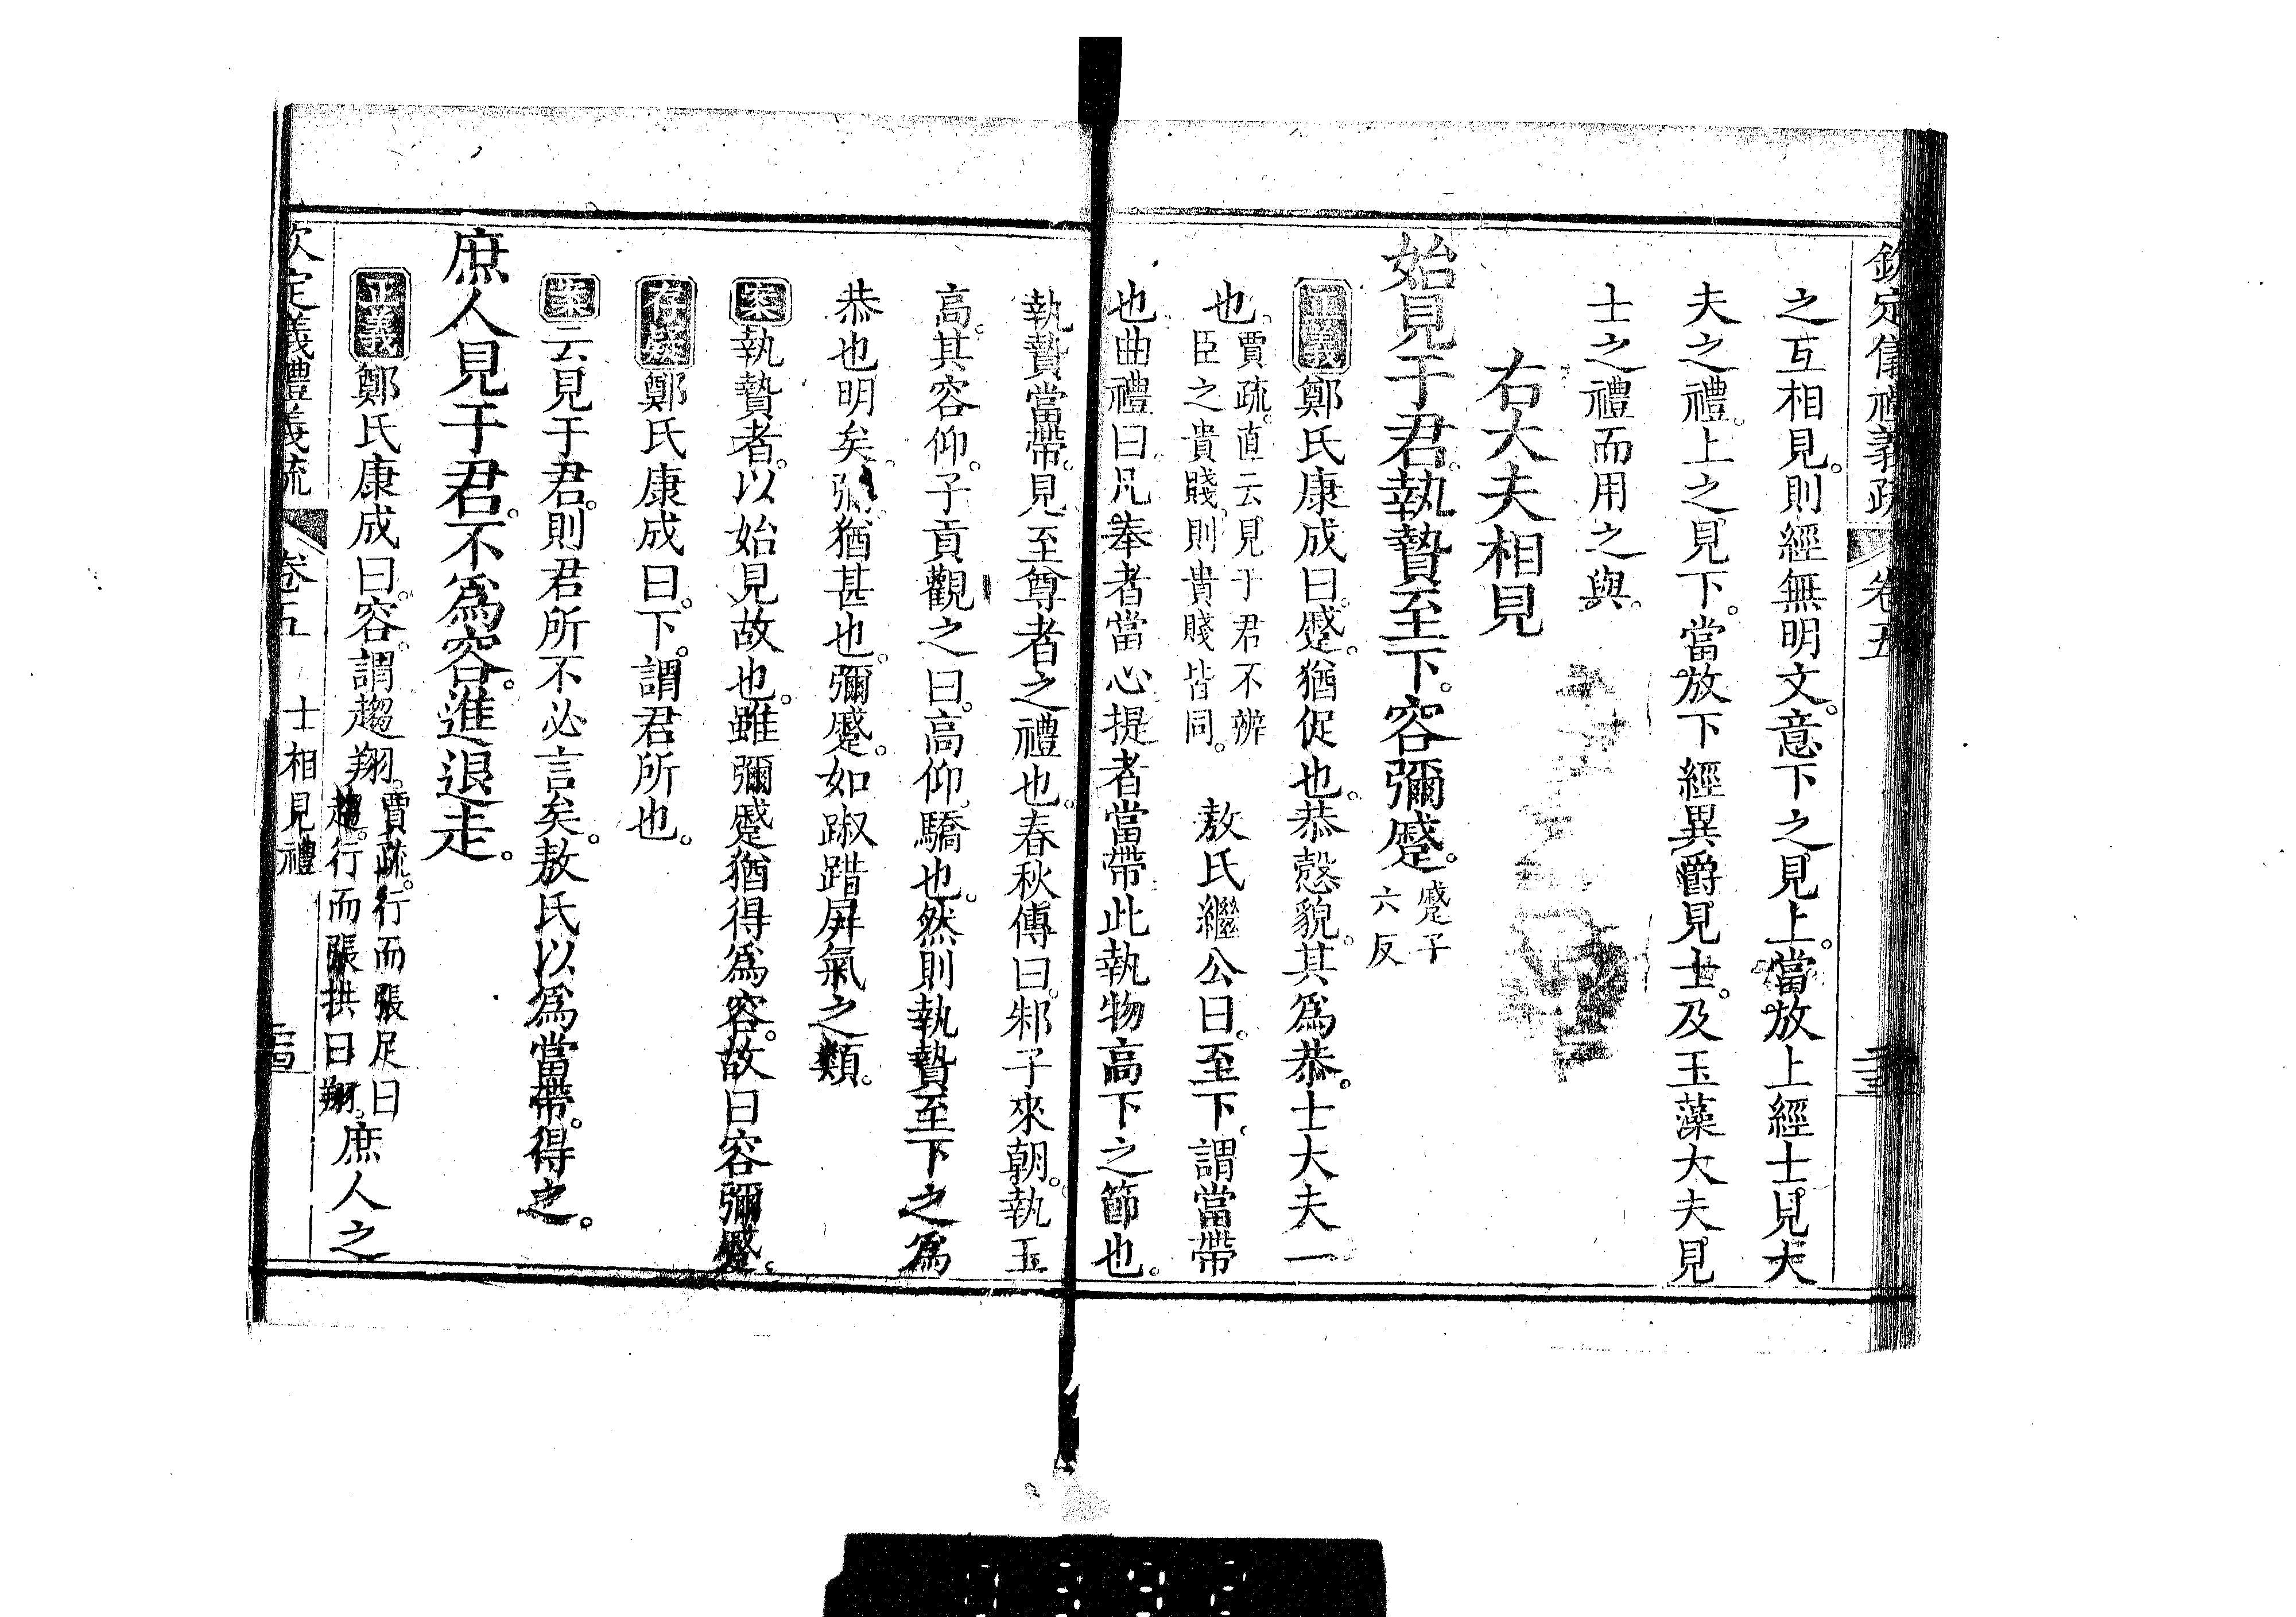 欽定儀禮義疏 卷五
之互相見。則經無明文。意下之見上。當放上經士見大
夫之禮。上之見下。當放下經異爵見士。及玉藻大夫見
士之禮而用之與。
右大夫相見
始見于君。執贄至下。容彌蹙。蹙子六反
正義鄭氏康成曰。蹙。猶促也。恭慤貌。其為恭。士大夫一
也。賈疏。直云見于君不辨臣之貴賤。則貴賤皆同。 敖氏繼公曰。至下、謂當帶
也。曲禮曰。凡奉者當心。提者當帶。此執物高下之節也。
執贄當帶。見至尊者之禮也。春秋傳曰。邾子來朝。執玉
高。其容仰。子貢觀之曰。高仰。驕也。然則執贄至下之為
恭也明矣。彌。猶甚也。彌蹙。如踧踖屏氣之類。
案執贄者。以始見故也。雖彌蹙猶得為容。故曰容彌蹙。
存疑鄭氏康成曰。下。謂君所也。
案云見于君。則君所不必言矣。敖氏以為當帶。得之。
庶人見于君。不為容。進退走。
正義鄭氏康成曰。容。謂趨翔。賈疏。行而張足曰趨。行而張拱曰翔。庶人之
欽定義禮義疏 卷五 士相見禮